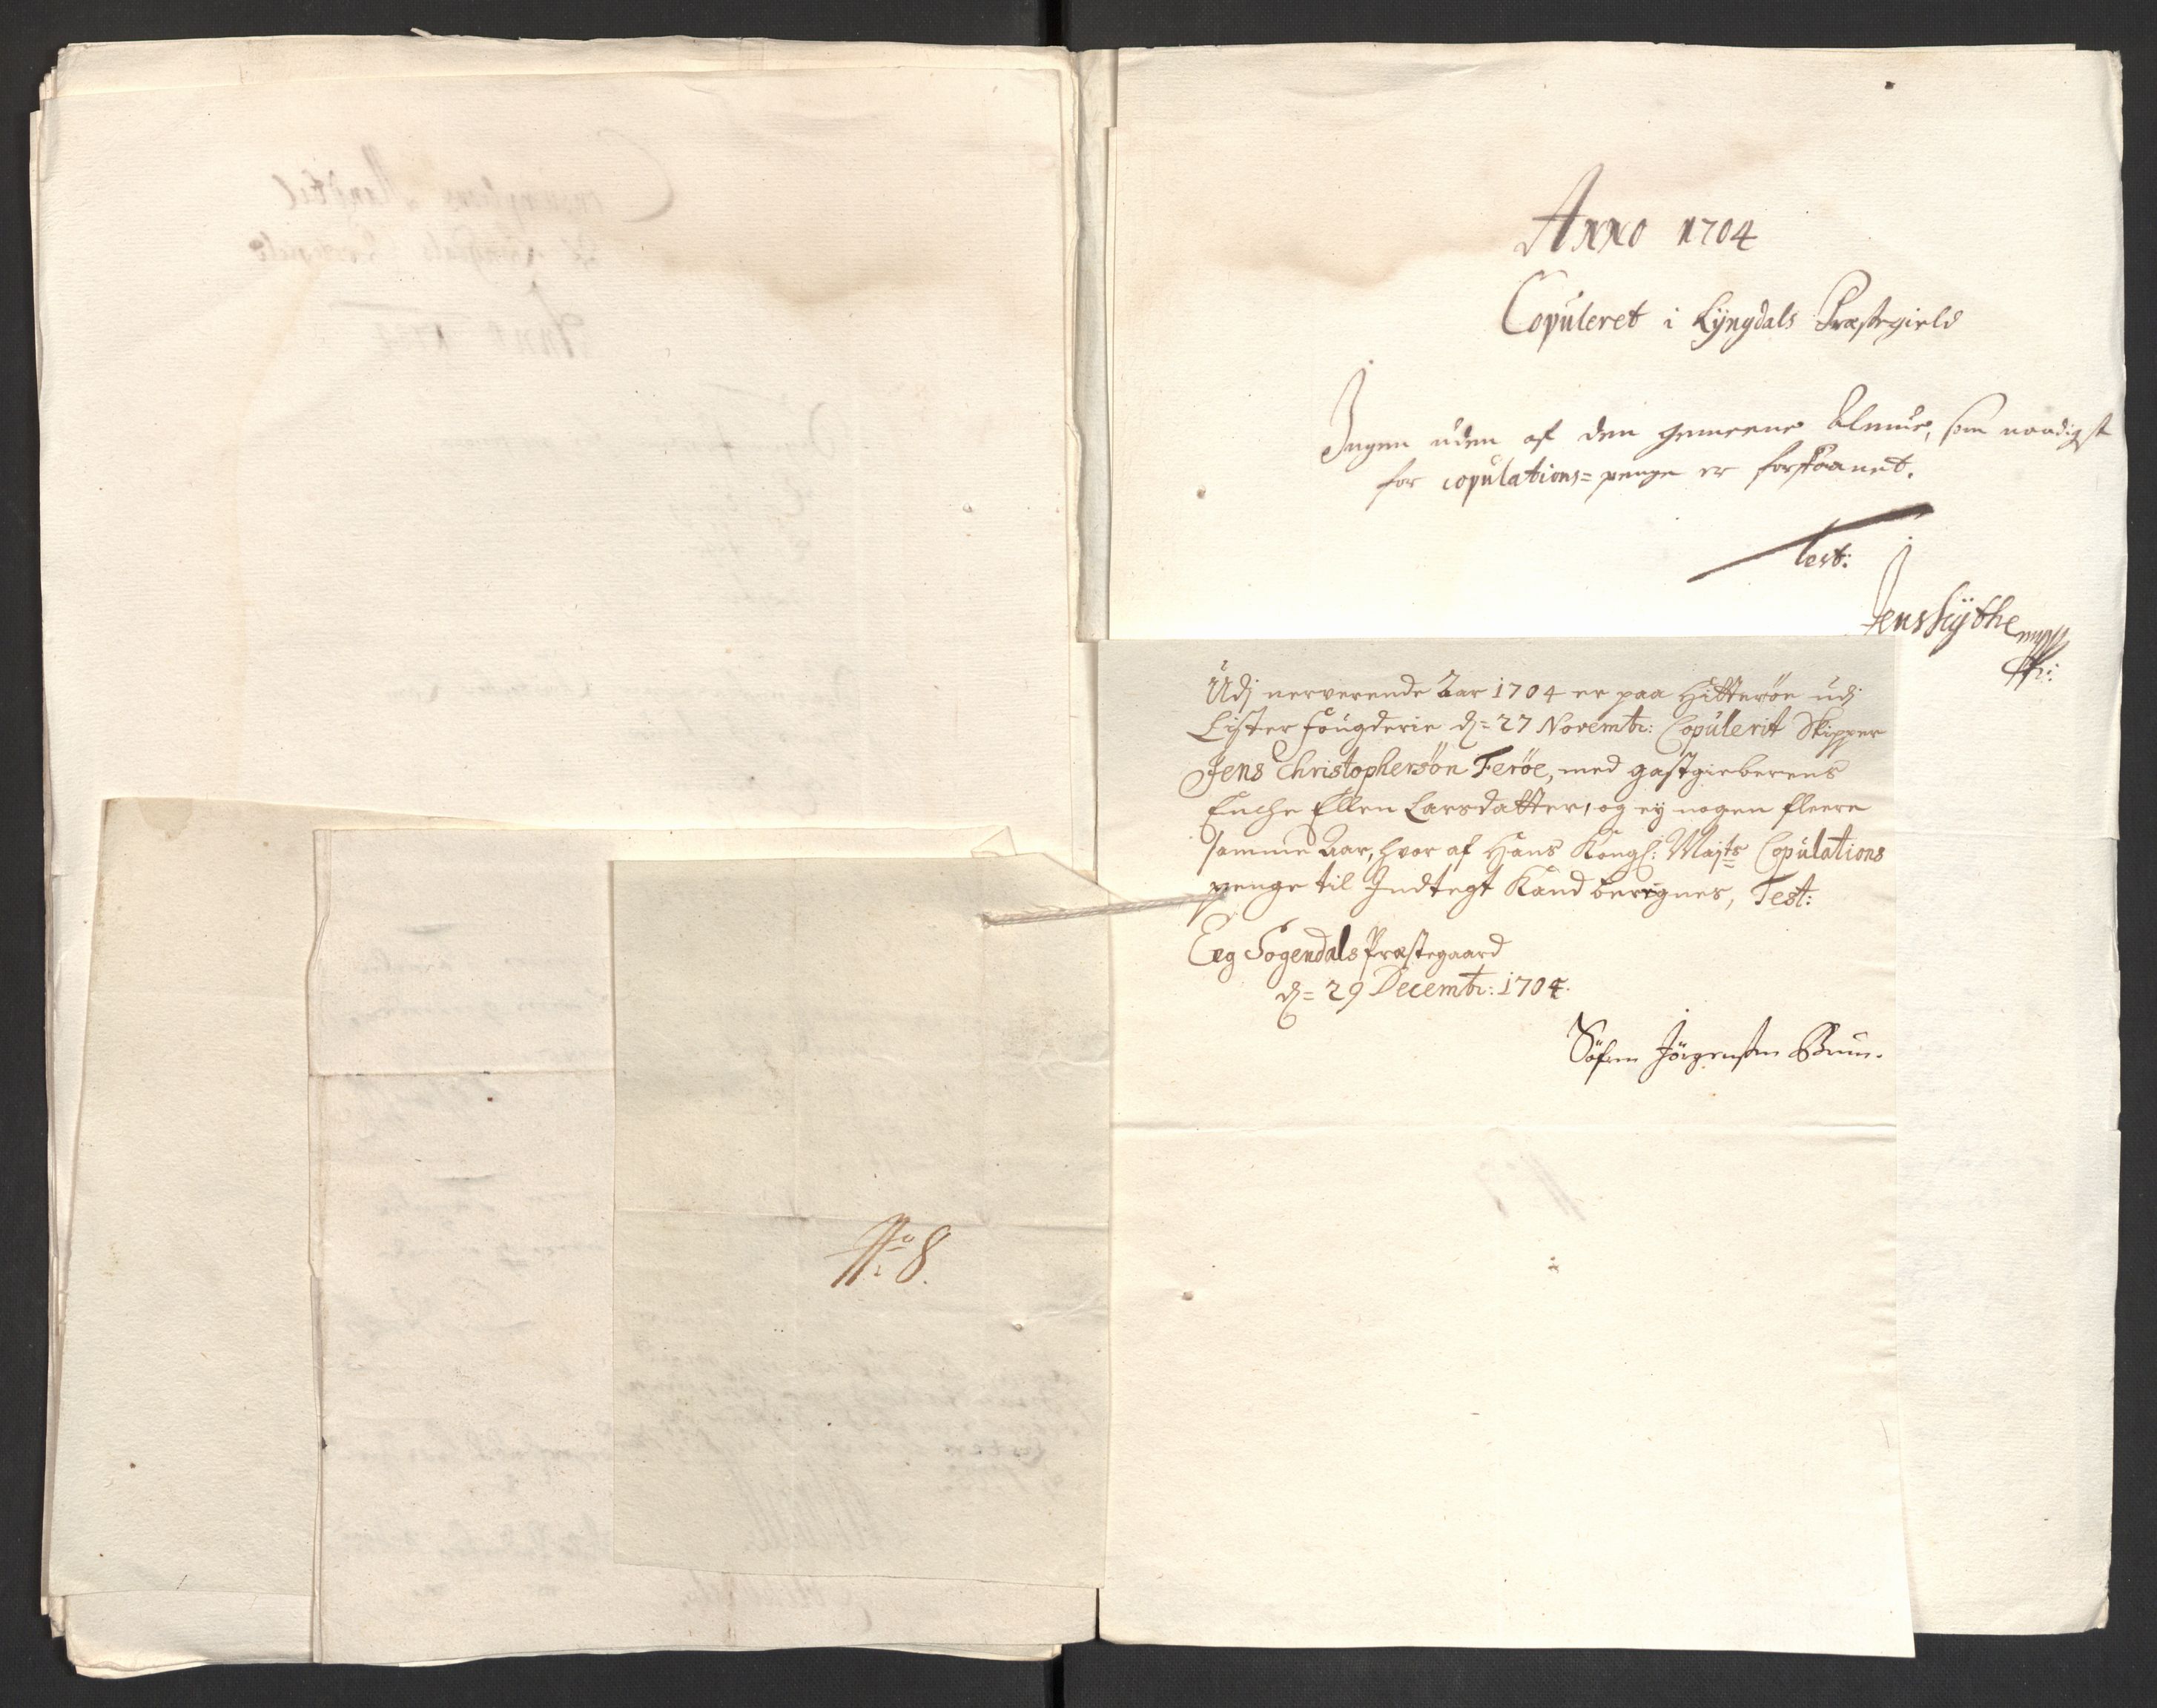 No 8.
Anno 1704
Copuleret i Lÿngdals Præstegield
Ingen uden af den gemeene Almue, som naadigst
for copulations=penge er forskaanet.
Test:
Udj nerverende Aar 1704 er paa Hitterøe udj
Lister fougderie d= 27 Novembr: Copulerit Skipper
Jens Christophersøn Ferøe, med gastgieberens
Enche Ellen Larsdatter, og ej nogen fleere
samme Aar, hvor af Hans Kongl: Majts Copulations
penge til Indtegt Kand berignes, Test:
Eeg Sogendals Præstegaard
d= 29 Decembr: 1704.
Søfren Jørgensen Bruun.